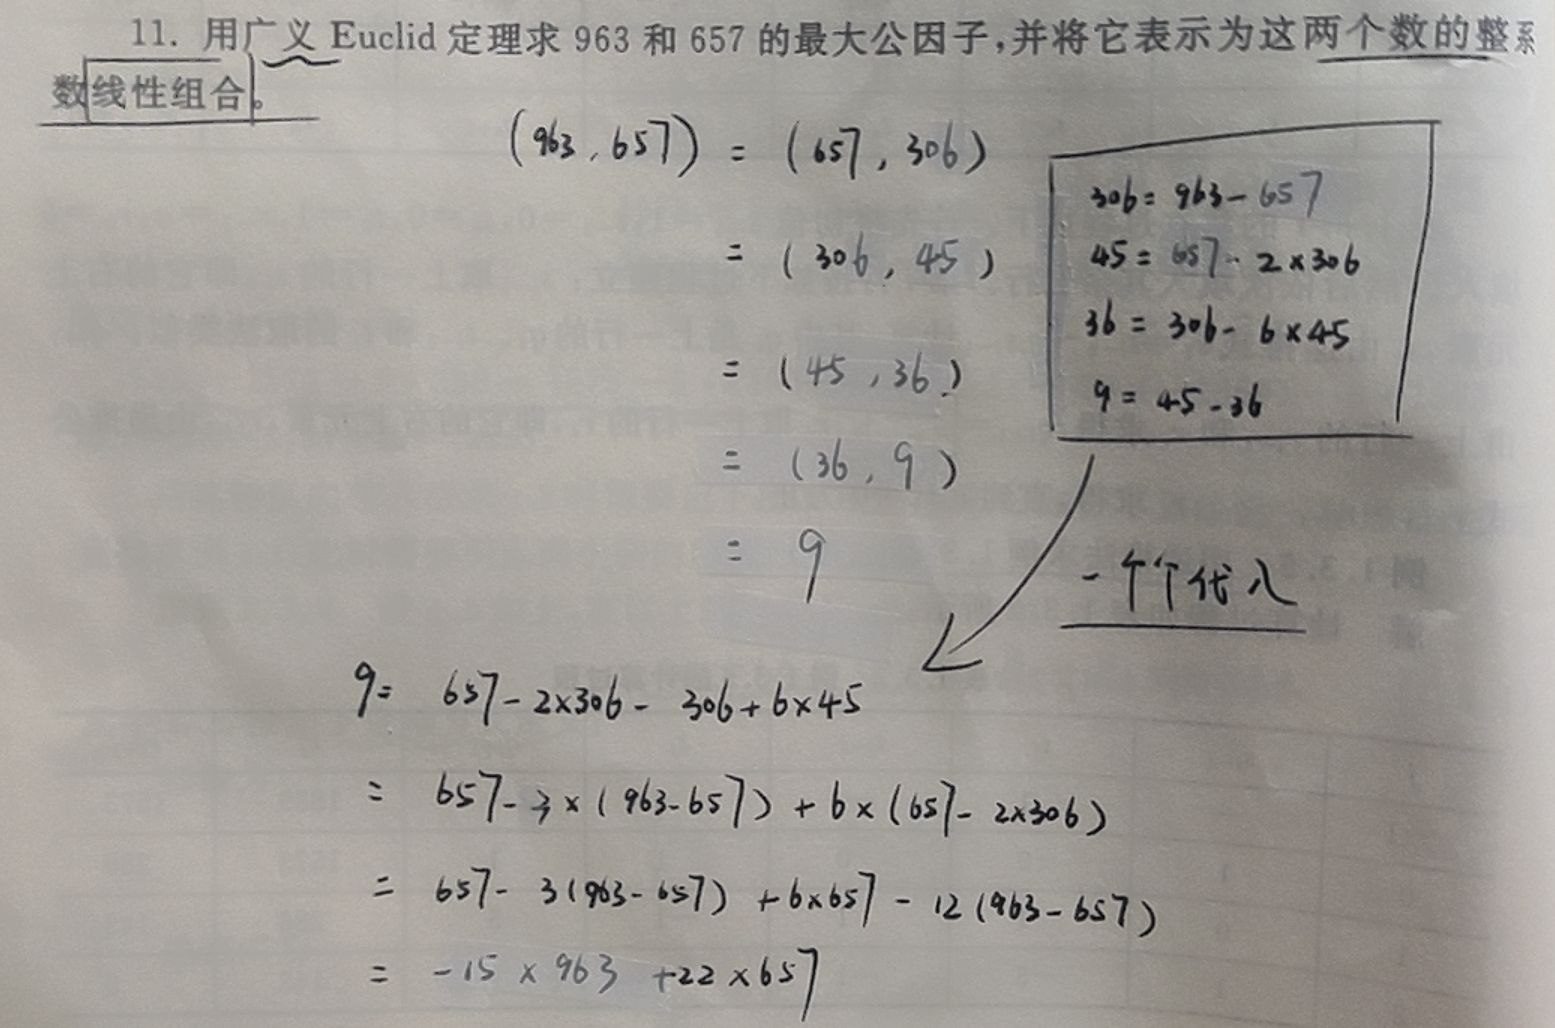 11. 用广义 Euclid 定理求 963 和 657 的最大公因子,并将它表示为这两个数的整系
数线性组合。
(963, 657) = (657, 306)
= (306, 45)
= (45, 36)
= (36, 9)
= 9
306 = 963 - 657
45 = 657 - 2×306
36 = 306 - 6×45
9 = 45 - 36
一个个代入
9= 657 - 2×306 - 306 + 6×45
= 657 - 3×(963-657) + 6×(657 - 2×306)
= 657 - 3(963-657) + 6×657 - 12(963-657)
= -15 × 963 + 22×657